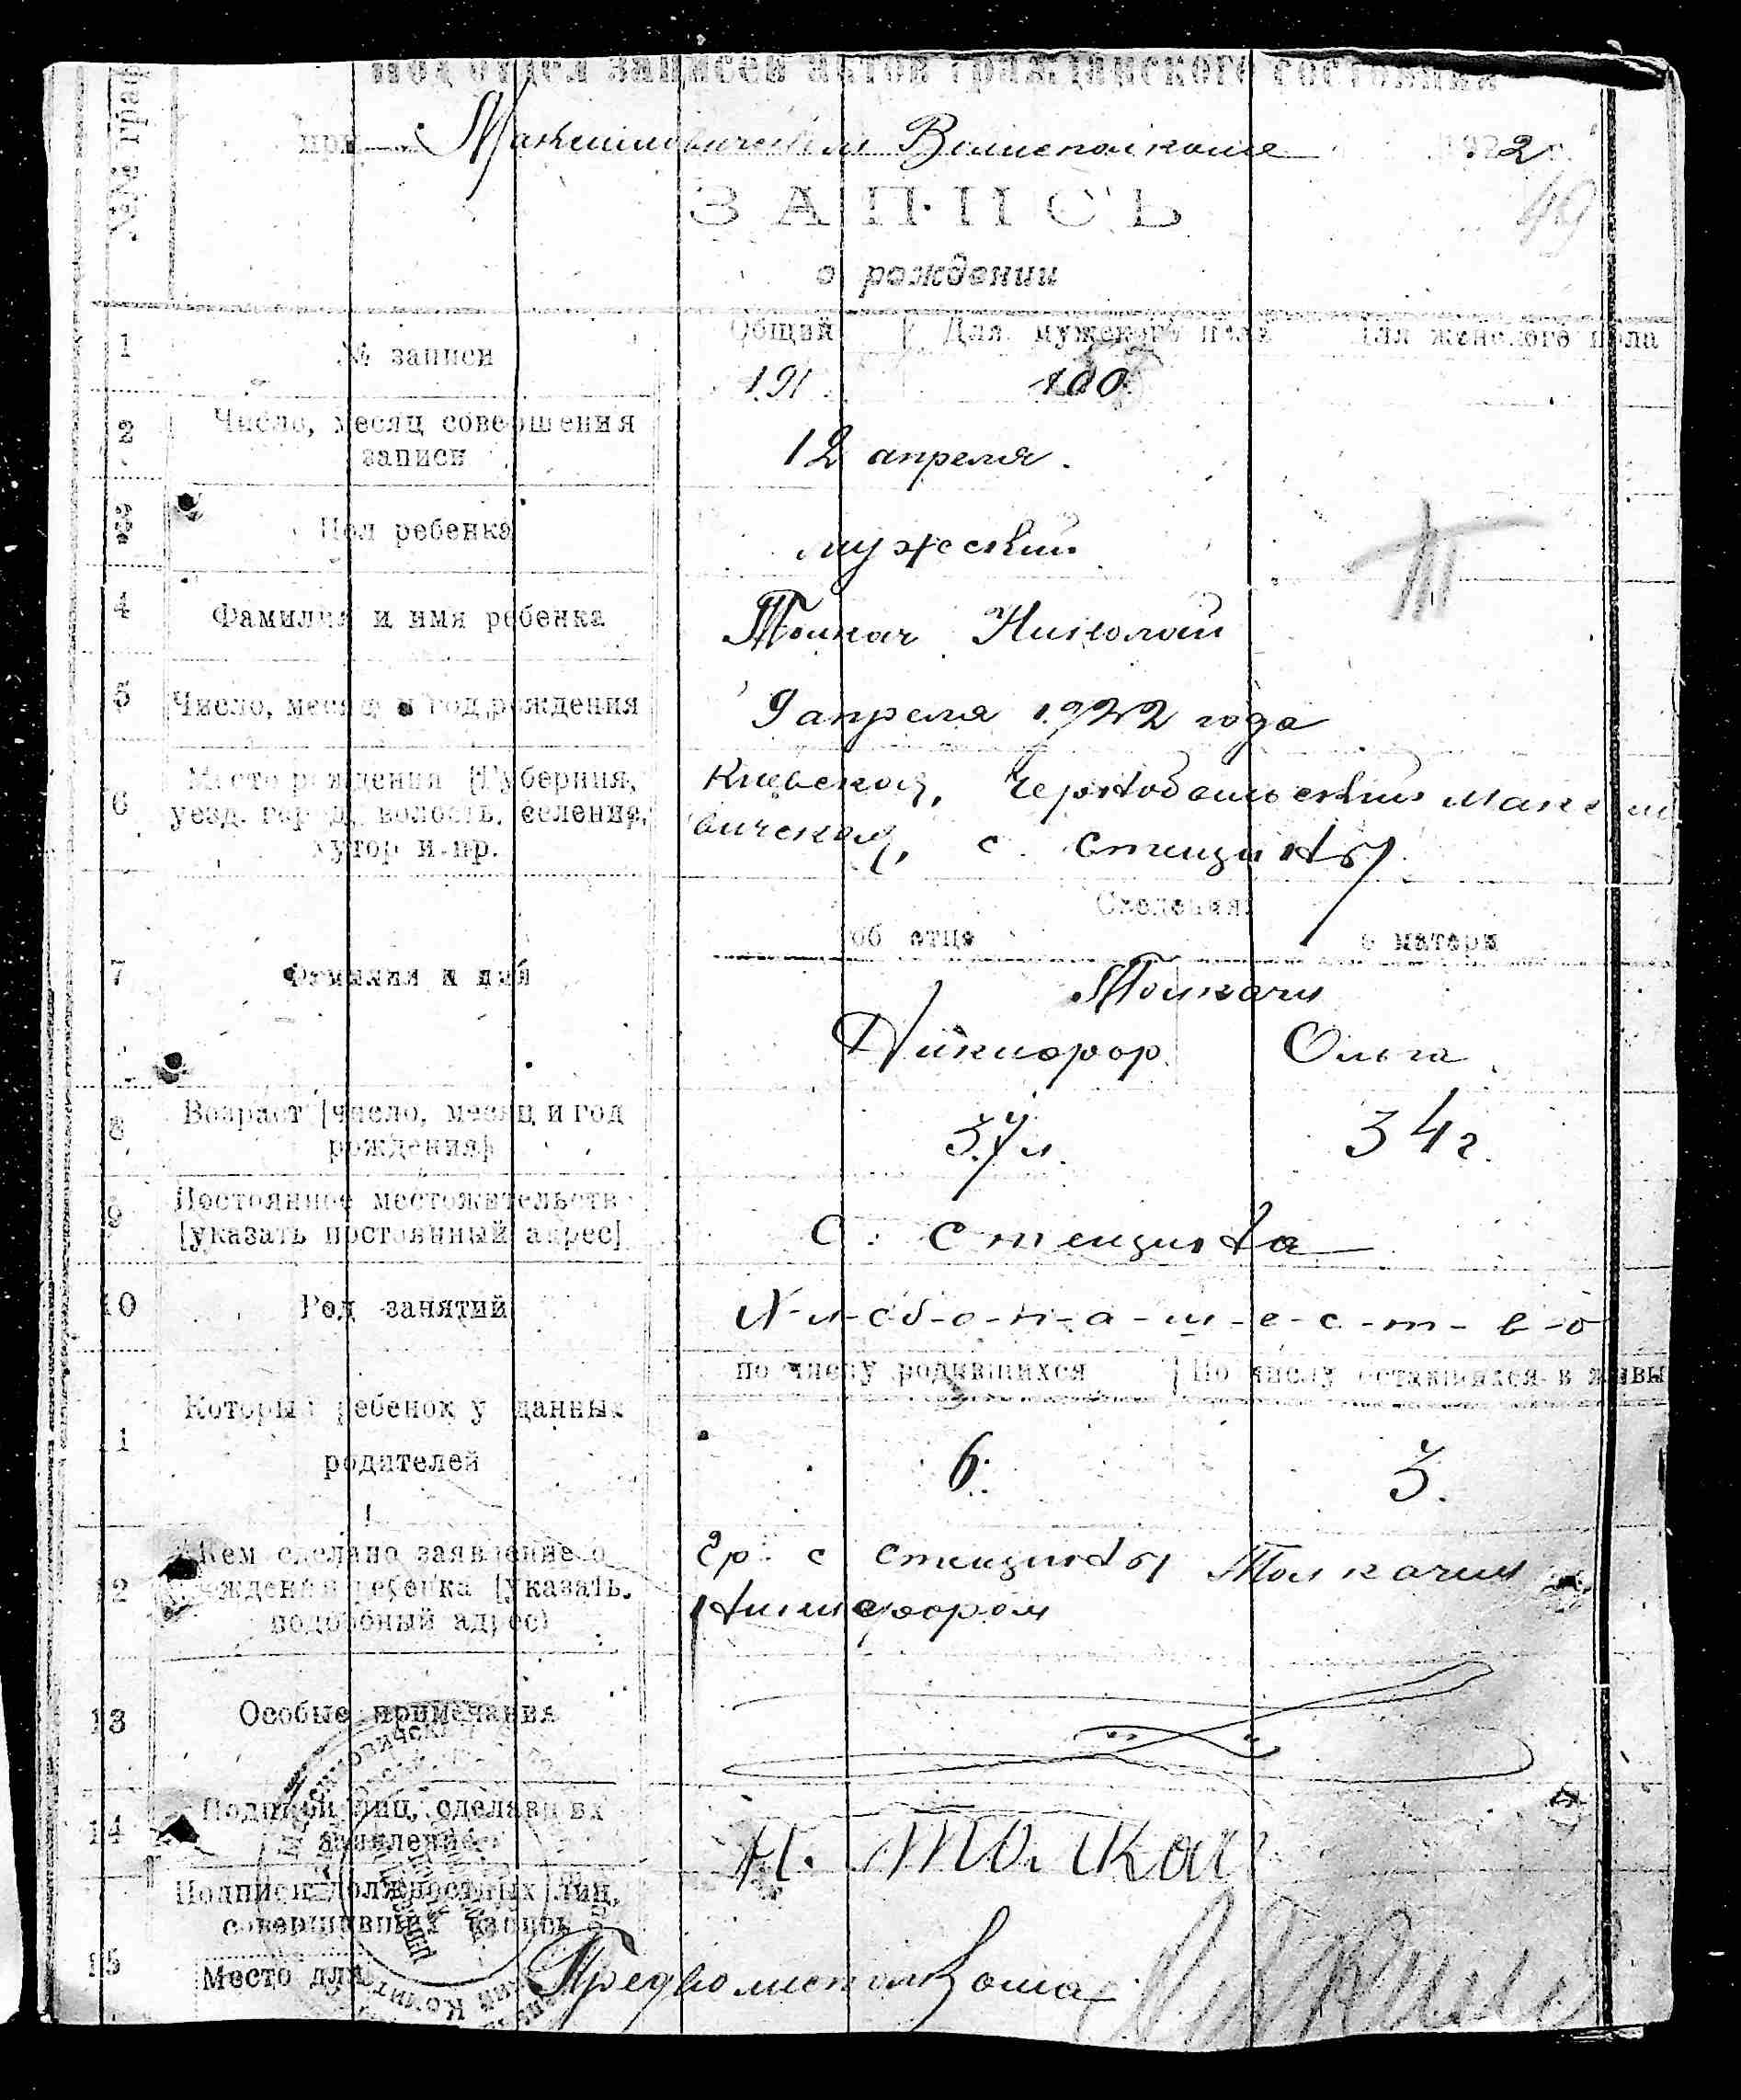 Под отдел записей актов гражданского состояния
при Максимовичском Волисполкоме 1922 г.
49
ЗАПИСЬ
о рождении
№№ граф
Общий Для мужского пола Для женского пола
1 № записи
191 100
2 Число, месяц совершения
записи
12 апреля.
3 Пол ребенка
мужеский
4 Фамилия и имя ребенка
Толкач Николай
5 Число, месяц и год рождения
9 апреля 1922 года
6 Место рождения (Губерния,
уезд, город, волость, селение,
хутор и пр.
Киевской, Чернобыльский Максим
вичской, с. Стещины
Сведения:
об отце о матери
7 Фамилия и имя
Толкачи
Никифор Ольга
8 Возраст [число, месяц и год
рождения]
37 л. 34 г.
9 Постоянное местожительств
[указать постоянный адрес]
с. Стещина
10 Род занятий
Х-л-е-б-о-п-а-ш-е-с-т-в-о
по числу родившихся По числу оставшихся в живы
11 Который ребенок у данных
родителей
6. 3.
12 Кем сделано заявление о
рождении ребенка [указать
подобный адрес)
Гр. с Стещины Толкачем
Никифором
13 Особые примечания
14 Подписи лиц, сделавших
заявление
Н. Толкач
Подписи должностных лиц,
совершивших запись
15 Место для
Предволисполкома